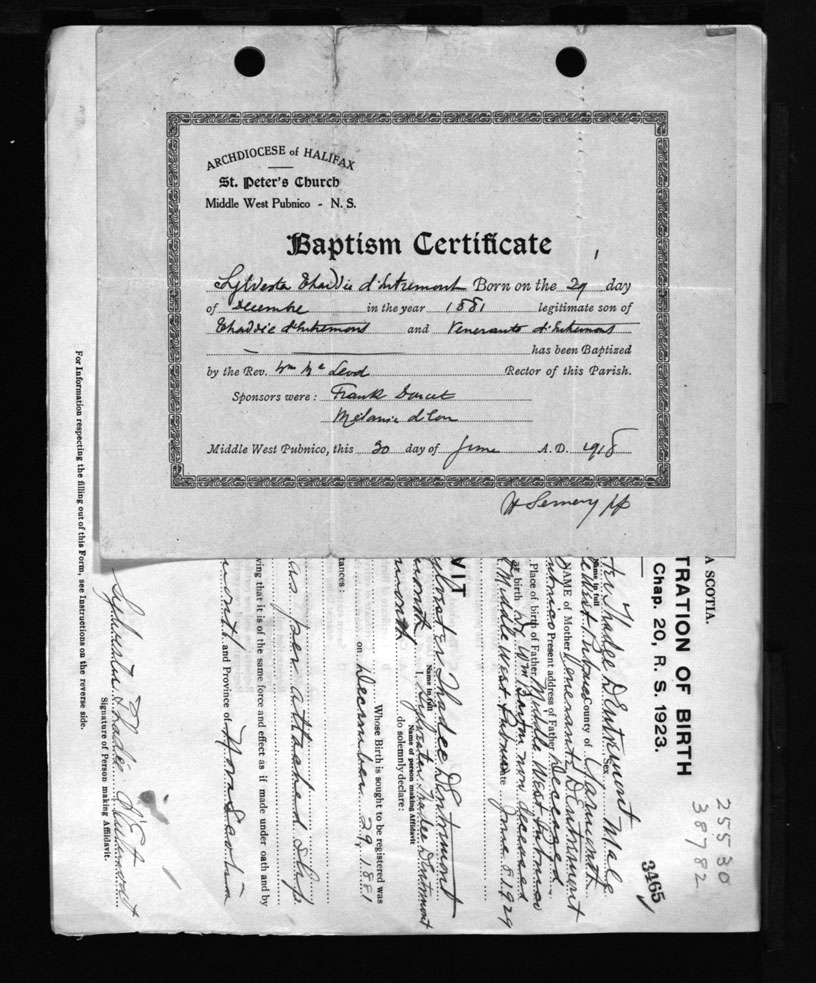 ARCHDIOCESE of HALIFAX
St. Peter's Church
Middle West Pubnico - N. S.
Baptism Certificate
Sylvesta Thaddée d'Entremont Born on the 29 day
of Decembre in the year 1881 legitimate son of
Thaddée d'Entremont and d'Entremont
has been Baptized
by the Rev. Wm Mc Leod Rector of this Parish.
Sponsors were: Frank
Mélanie d'Eon
Middle West Pubnico, this 30 day of June A. D. 1918
A SCOTIA.
TRATION OF BIRTH
Chap. 20, R. S. 1923.
25530
38782
3465
Thadee DEntremont Male
Name in full Sex
West Pubnico County of Yarmouth
NAME of Mother DEntremont
Pubnico Present address of Father Deceased
Place of birth of Father Middle West Pubnico
at birth Dr. Wm now deceased
Middle West Pubnico Date June 8. 1929
VIT
Sylvester Thadee DEntremont
Name in full
mouth I, Sylvester Thadee DEntremont
Name of person making Affidavit
mouth do solemnly declare:
Whose Birth is sought to be registered was
on December 29, 1881
tances:
as per attached slip
ving that it is of the same force and effect as if made under oath and by
mouth and Province of Nova Scotia
Sylvester Thadee DEntremont
Signature of Person making Affidavit.
For Information respecting the filling out of this Form, see Instructions on the reverse side.